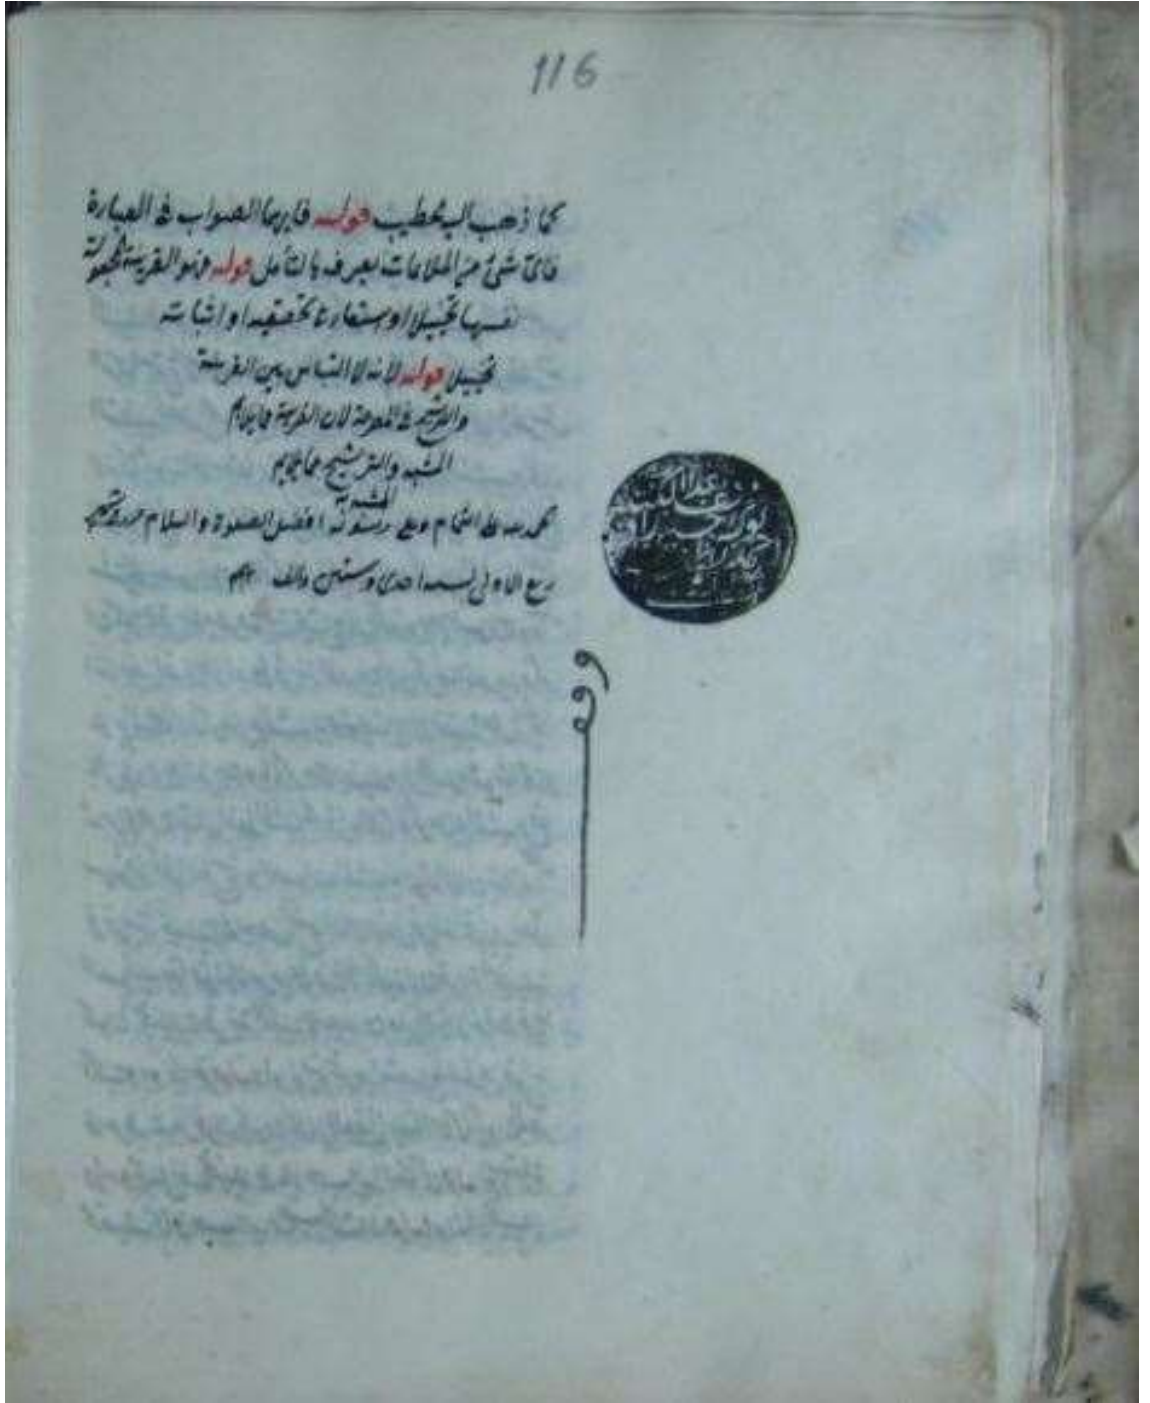 116
كما ذهب اليه الخطيب قوله فايهما الصواب في العبارة
فاى شئ من الملايمات يعرف بالتأمل قوله فهو القرينة
نفسها تخييلا او استعارة تحقيقية او اثباته
تخييلا قوله لانه لا التباس بين القرينة
والترشيح في المصرحة لان القرينة مما يلايم
المشبه والترشيح مما يلايم
المشبه به
الحمد لله على التمام وعلى رسوله افضل الصلوة والسلام
ربيع الاولى لسنه احدى وستين والف
وقف